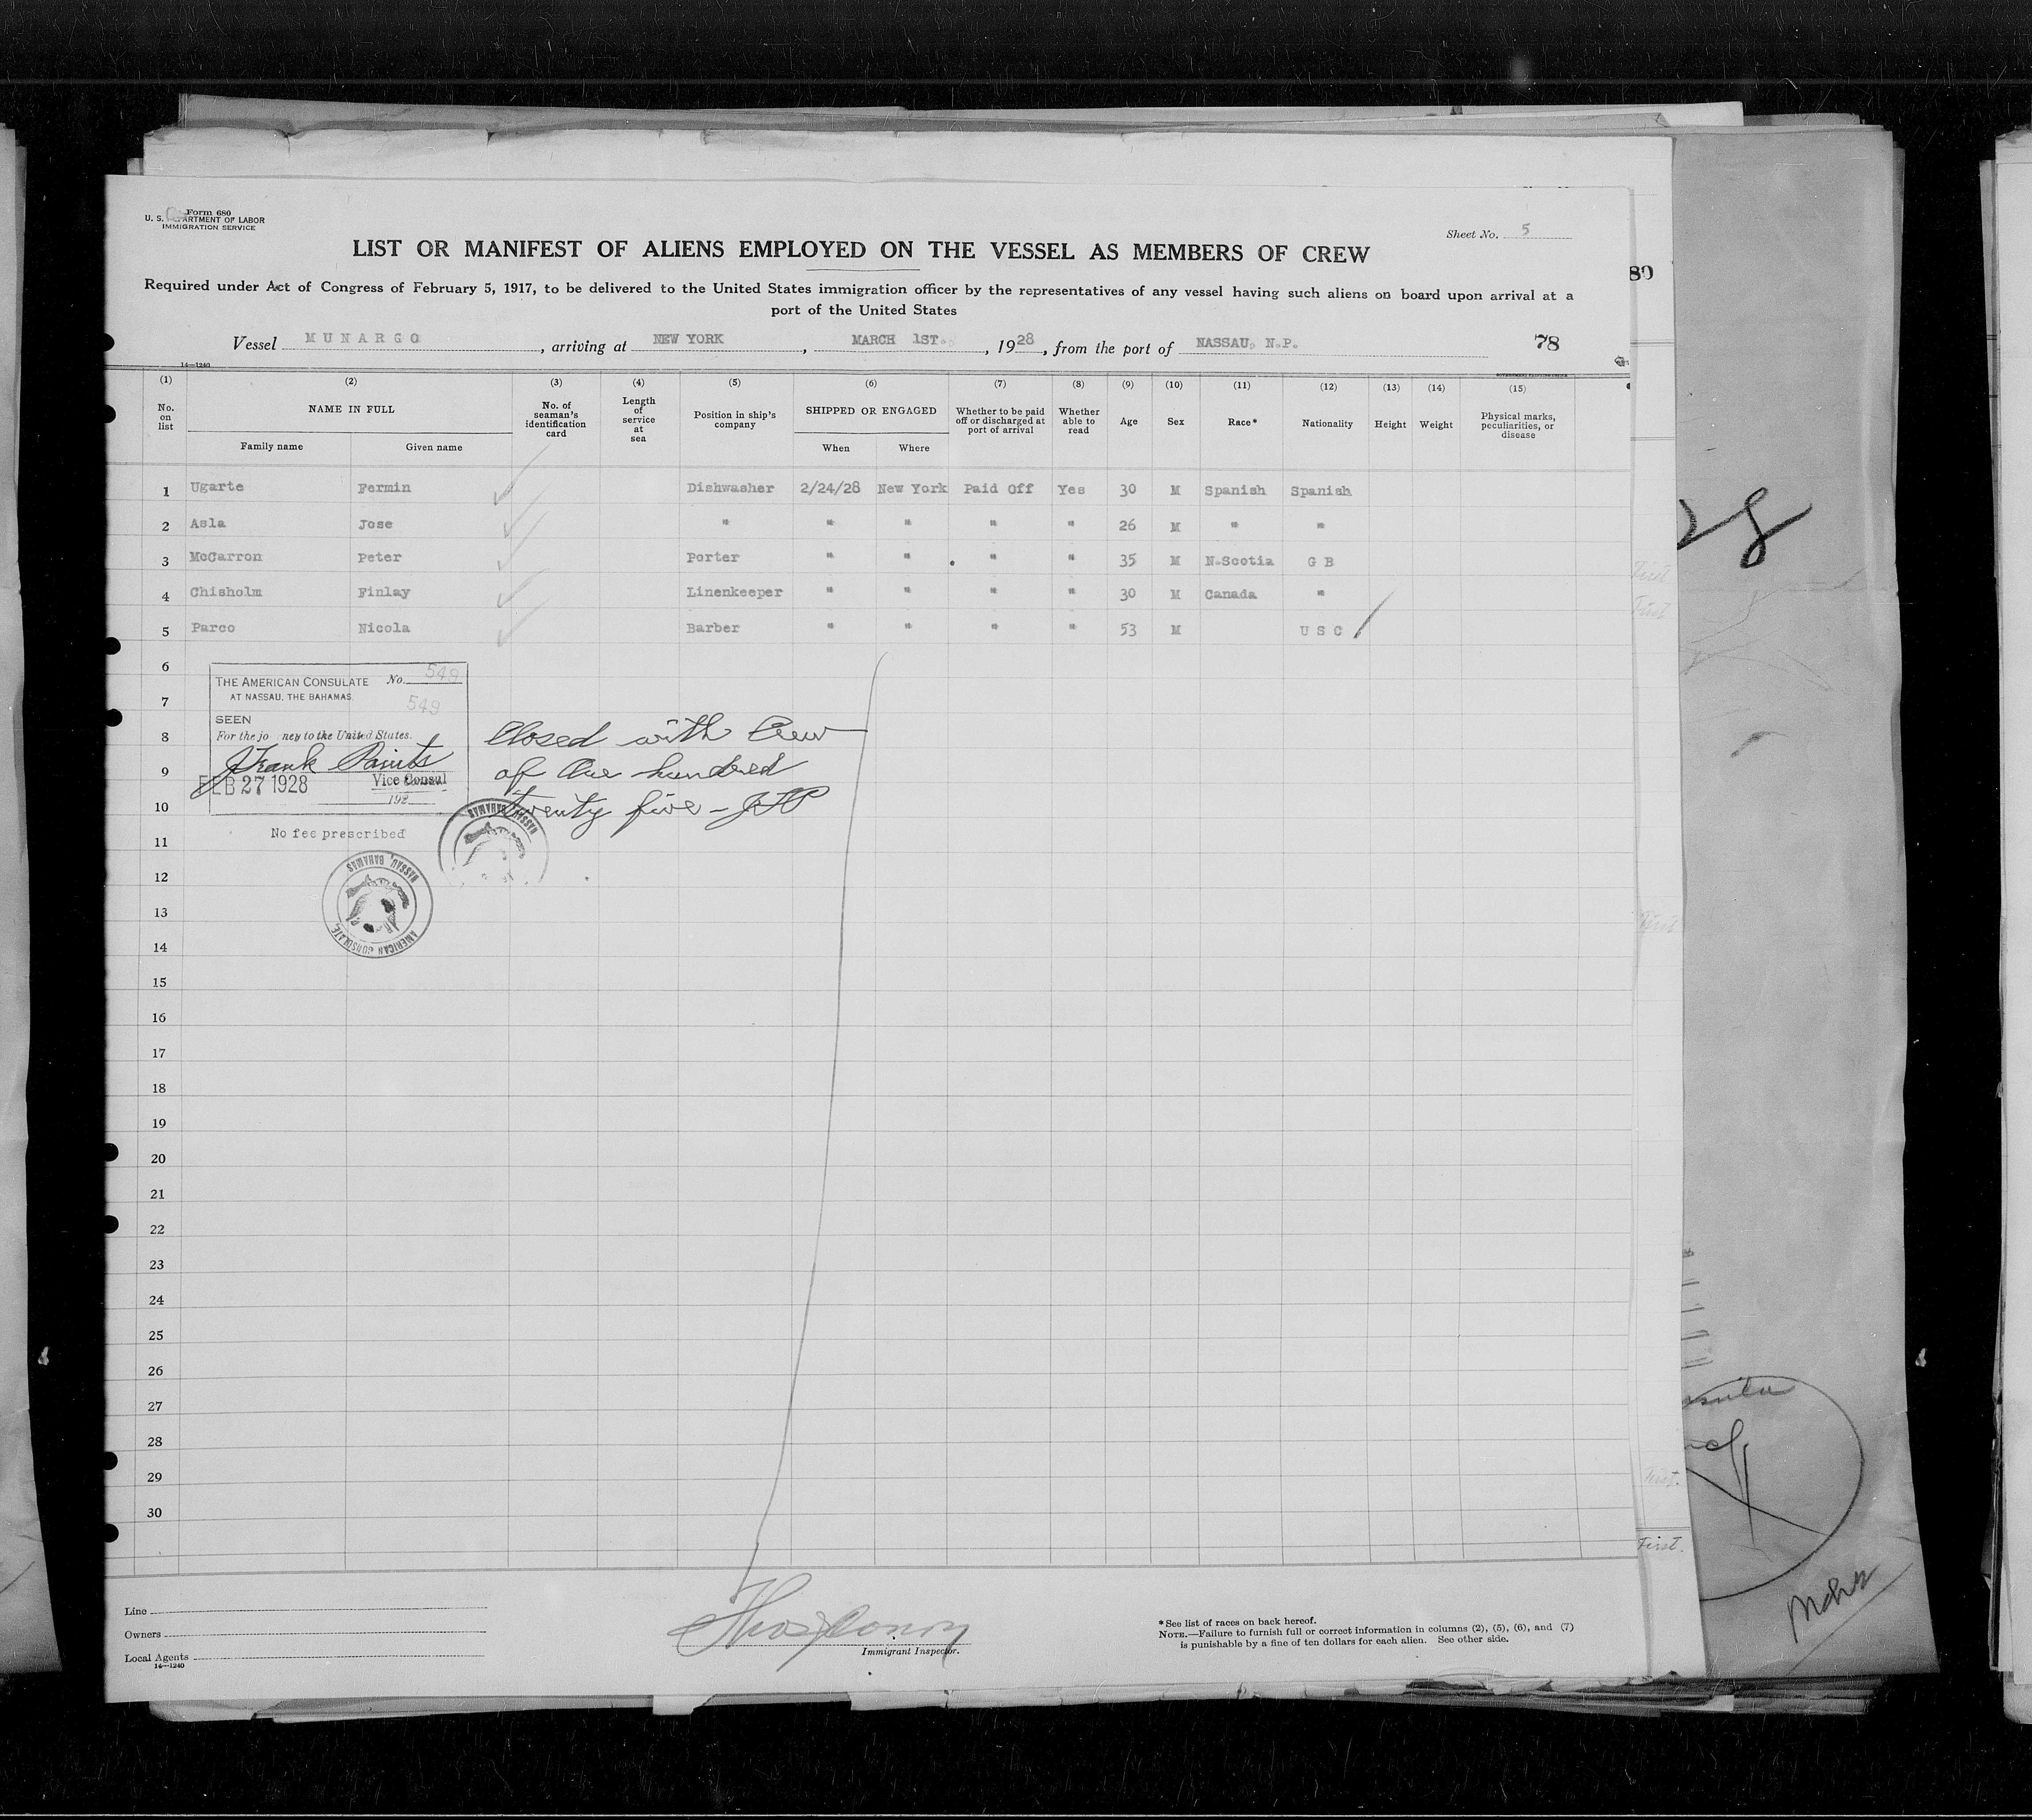 Form 680
U. S. DEPARTMENT OF LABOR
IMMIGRATION SERVICE
Sheet No. 5
LIST OR MANIFEST OF ALIENS EMPLOYED ON THE VESSEL AS MEMBERS OF CREW
Required under Act of Congress of February 5, 1917, to be delivered to the United States immigration officer by the representatives of any vessel having such aliens on board upon arrival at a
port of the United States
80
Vessel MUNARGO, arriving at NEW YORK, MARCH 1ST., 1928, from the port of NASSAU, N.P. 78
14-1240
(1) (2) (3) (4) (5) (6) (7) (8) (9) (10) (11) (12) (13) (14) (15)
No. on list NAME IN FULL No. of seaman's identification card Length of service at sea Position in ship's company SHIPPED OR ENGAGED Whether to be paid off or discharged at port of arrival Whether able to read Age Sex Race* Nationality Height Weight Physical marks, peculiarities, or disease
Family name Given name When Where
1 Ugarte Fermin Dishwasher 2/24/28 New York Paid Off Yes 30 M Spanish Spanish
2 Asla Jose " " " " " 26 M " "
3 McCarron Peter Porter " " " " 35 M N.Scotia G B
4 Chisholm Finlay Linenkeeper " " " " 30 M Canada "
5 Parco Nicola Barber " " " " 53 M U S C
6
7
8
9
10
11
12
13
14
15
16
17
18
19
20
21
22
23
24
25
26
27
28
29
30
THE AMERICAN CONSULATE No. 549
AT NASSAU, THE BAHAMAS.
549
SEEN
For the jo ney to the United States.
FEB 27 1928 Vice Consul
192
No fee prescribed
Closed with Crew
of One hundred
twenty five - JFP
NASSAU, BAHAMAS
AMERICAN CONSULATE,
NASSAU, BAHAMAS
First
First
First
First.
First.
Line
Owners
Local Agents
14-1240
Immigrant Inspector.
*See list of races on back hereof.
NOTE.—Failure to furnish full or correct information in columns (2), (5), (6), and (7)
is punishable by a fine of ten dollars for each alien. See other side.